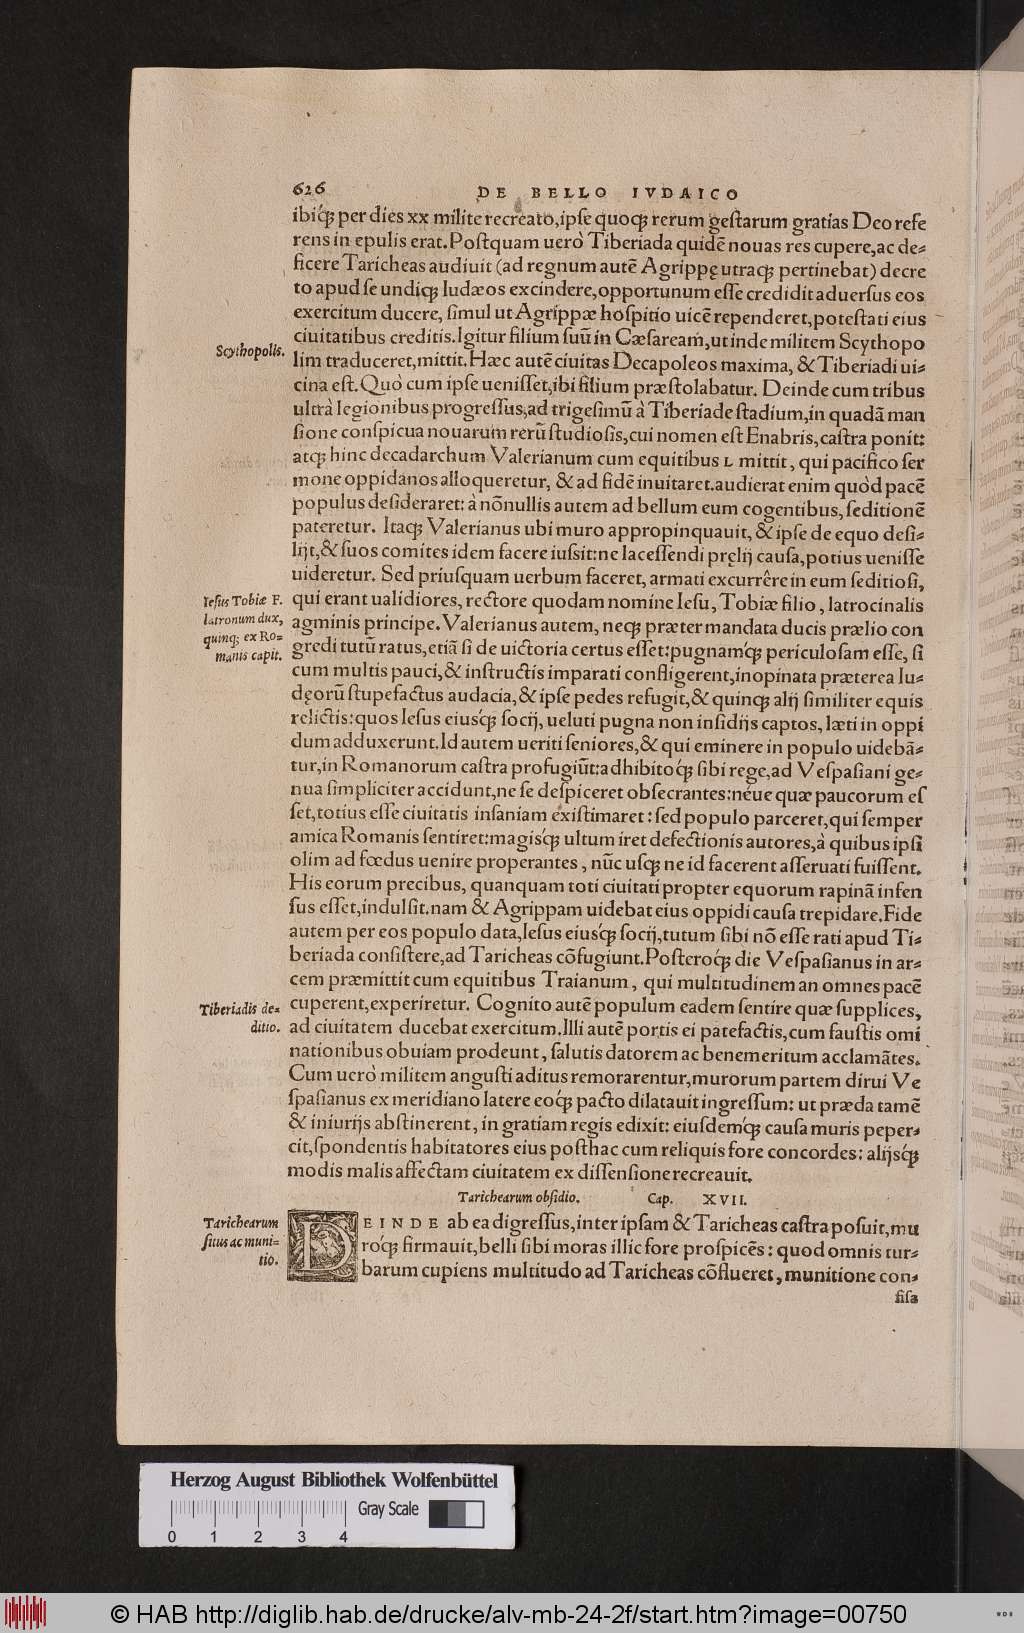 626 DE BELLO IVDAICO
ibiq́ꝫ per dies xx milite recreato,ipſe quoqꝫ rerum geſtarum gratias Deo refe
rens in epulis erat.Poſtquam uerò Tiberiada quidē nouas res cupere,ac de⸗
ficere Taricheas audiuit (ad regnum autē Agrippę utraqꝫ pertinebat) decre
to apud ſe undiqꝫ Iudæos excindere,opportunum eſſe credidit aduerſus eos
exercitum ducere, ſimul ut Agrippæ hoſpitio uicē rependeret,poteſtati eius
ciuitatibus creditis.Igitur filium ſuū in Cæſaream,ut inde militem Scythopo
Scythopolis.
lim traduceret,mittit.Hæc autē ciuitas Decapoleos maxima, & Tiberiadi ui⸗
cina eſt.Quò cum ipſe ueniſſet,ibi filium præſtolabatur. Deinde cum tribus
ultrà legionibus progreſſus,ad trigeſimū à Tiberiade ſtadium,in quadā man
ſione conſpicua nouarum rerū ſtudioſis,cui nomen eſt Enabris,caſtra ponit:
atqꝫ hinc decadarchum Valerianum cum equitibus L mittit, qui pacifico ſer
mone oppidanos alloqueretur, & ad fidē inuitaret.audierat enim quòd pacē
populus deſideraret: à nōnullis autem ad bellum eum cogentibus, ſeditionē
pateretur. Itaqꝫ Valerianus ubi muro appropinquauit, & ipſe de equo deſi⸗
lijt,& ſuos comites idem facere iuſsit:ne laceſſendi pręlij cauſa,potius ueniſſe
uideretur. Sed priuſquam uerbum faceret, armati excurrêre in eum ſeditioſi,
Ieſus Tobiæ F.
latronum dux,
quinqꝫ ex Ro⸗
manis capit.
qui erant ualidiores, rectore quodam nomine Ieſu, Tobiæ filio, latrocinalis
agminis principe.Valerianus autem, neqꝫ præter mandata ducis prælio con
gredi tutū ratus,etiā ſi de uictoria certus eſſet:pugnamq́ꝫ periculoſam eſſe, ſi
cum multis pauci,& inſtructis imparati confligerent,inopinata præterea Iu⸗
dęorū ſtupefactus audacia,& ipſe pedes refugit,& quinqꝫ alij ſimiliter equis
relictis:quos Ieſus eiusq́ꝫ ſocij, ueluti pugna non inſidijs captos, læti in oppi
dum adduxerunt.Id autem ueriti ſeniores,& qui eminere in populo uidebā⸗
tur,in Romanorum caſtra profugiūt:adhibitoq́ꝫ ſibi rege,ad Veſpaſiani ge⸗
nua ſimpliciter accidunt,ne ſe deſpiceret obſecrantes:néue quæ paucorum eſ
ſet,totius eſſe ciuitatis inſaniam exiſtimaret: ſed populo parceret,qui ſemper
amica Romanis ſentiret:magisq́ꝫ ultum iret defectionis autores,à quibus ipſi
olim ad fœdus uenire properantes, nūc uſqꝫ ne id facerent aſſeruati fuiſſent.
His eorum precibus, quanquam toti ciuitati propter equorum rapinā infen
ſus eſſet,indulſit.nam & Agrippam uidebat eius oppidi cauſa trepidare.Fide
autem per eos populo data,Ieſus eiusq́ꝫ ſocij,tutum ſibi nō eſſe rati apud Ti⸗
beriada conſiſtere,ad Taricheas cōfugiunt.Poſteroq́ꝫ die Veſpaſianus in ar⸗
cem præmittit cum equitibus Traianum, qui multitudinem an omnes pacē
Tiberiadis de⸗
ditio.
cuperent,experiretur. Cognito autē populum eadem ſentire quæ ſupplices,
ad ciuitatem ducebat exercitum.Illi autē portis ei patefactis,cum fauſtis omi
nationibus obuiam prodeunt, ſalutis datorem ac benemeritum acclamātes.
Cum uerò militem anguſti aditus remorarentur,murorum partem dirui Ve
ſpaſianus ex meridiano latere eoq́ꝫ pacto dilatauit ingreſſum: ut præda tamē
& iniurijs abſtinerent, in gratiam regis edixit: eiuſdemq́ꝫ cauſa muris peper⸗
cit,ſpondentis habitatores eius poſthac cum reliquis fore concordes: alijsq́ꝫ
modis malis affectam ciuitatem ex diſſenſione recreauit.
Tarichearum obſidio. Cap. XVII.
Tarichearum
ſitus ac muni⸗
tio.
DEINDE ab ea digreſſus,inter ipſam & Taricheas caſtra poſuit,mu
roq́ꝫ firmauit,belli ſibi moras illic fore proſpicēs: quod omnis tur⸗
barum cupiens multitudo ad Taricheas cōflueret, munitione con⸗
fiſa
Herzog August Bibliothek Wolfenbüttel
Gray Scale
0 1 2 3 4
© HAB http://diglib.hab.de/drucke/alv-mb-24-2f/start.htm?image=00750